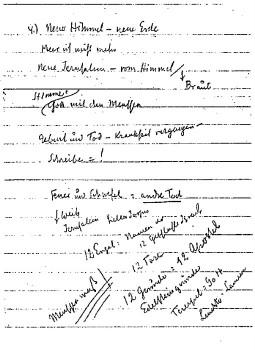 4.) Neuer Himmel – neue Erde
Meer ist nicht mehr
Neue Jerusalem – vom Himmel
Braut
Stimme:
Gott mit den Menschen
Geburt und Tod – Krankheit vergangen –
Schreibe = !
Feuer und Schwefel = andre Tod
Weib
Jerusalem
12 Engel = Namen der
12 Geschlechter Israel
12 Tore
12 Gründe = 12 Apostel
Edelsteingründe
Tempel = Gott
Leuchte = Lamm
Menschenmaß!